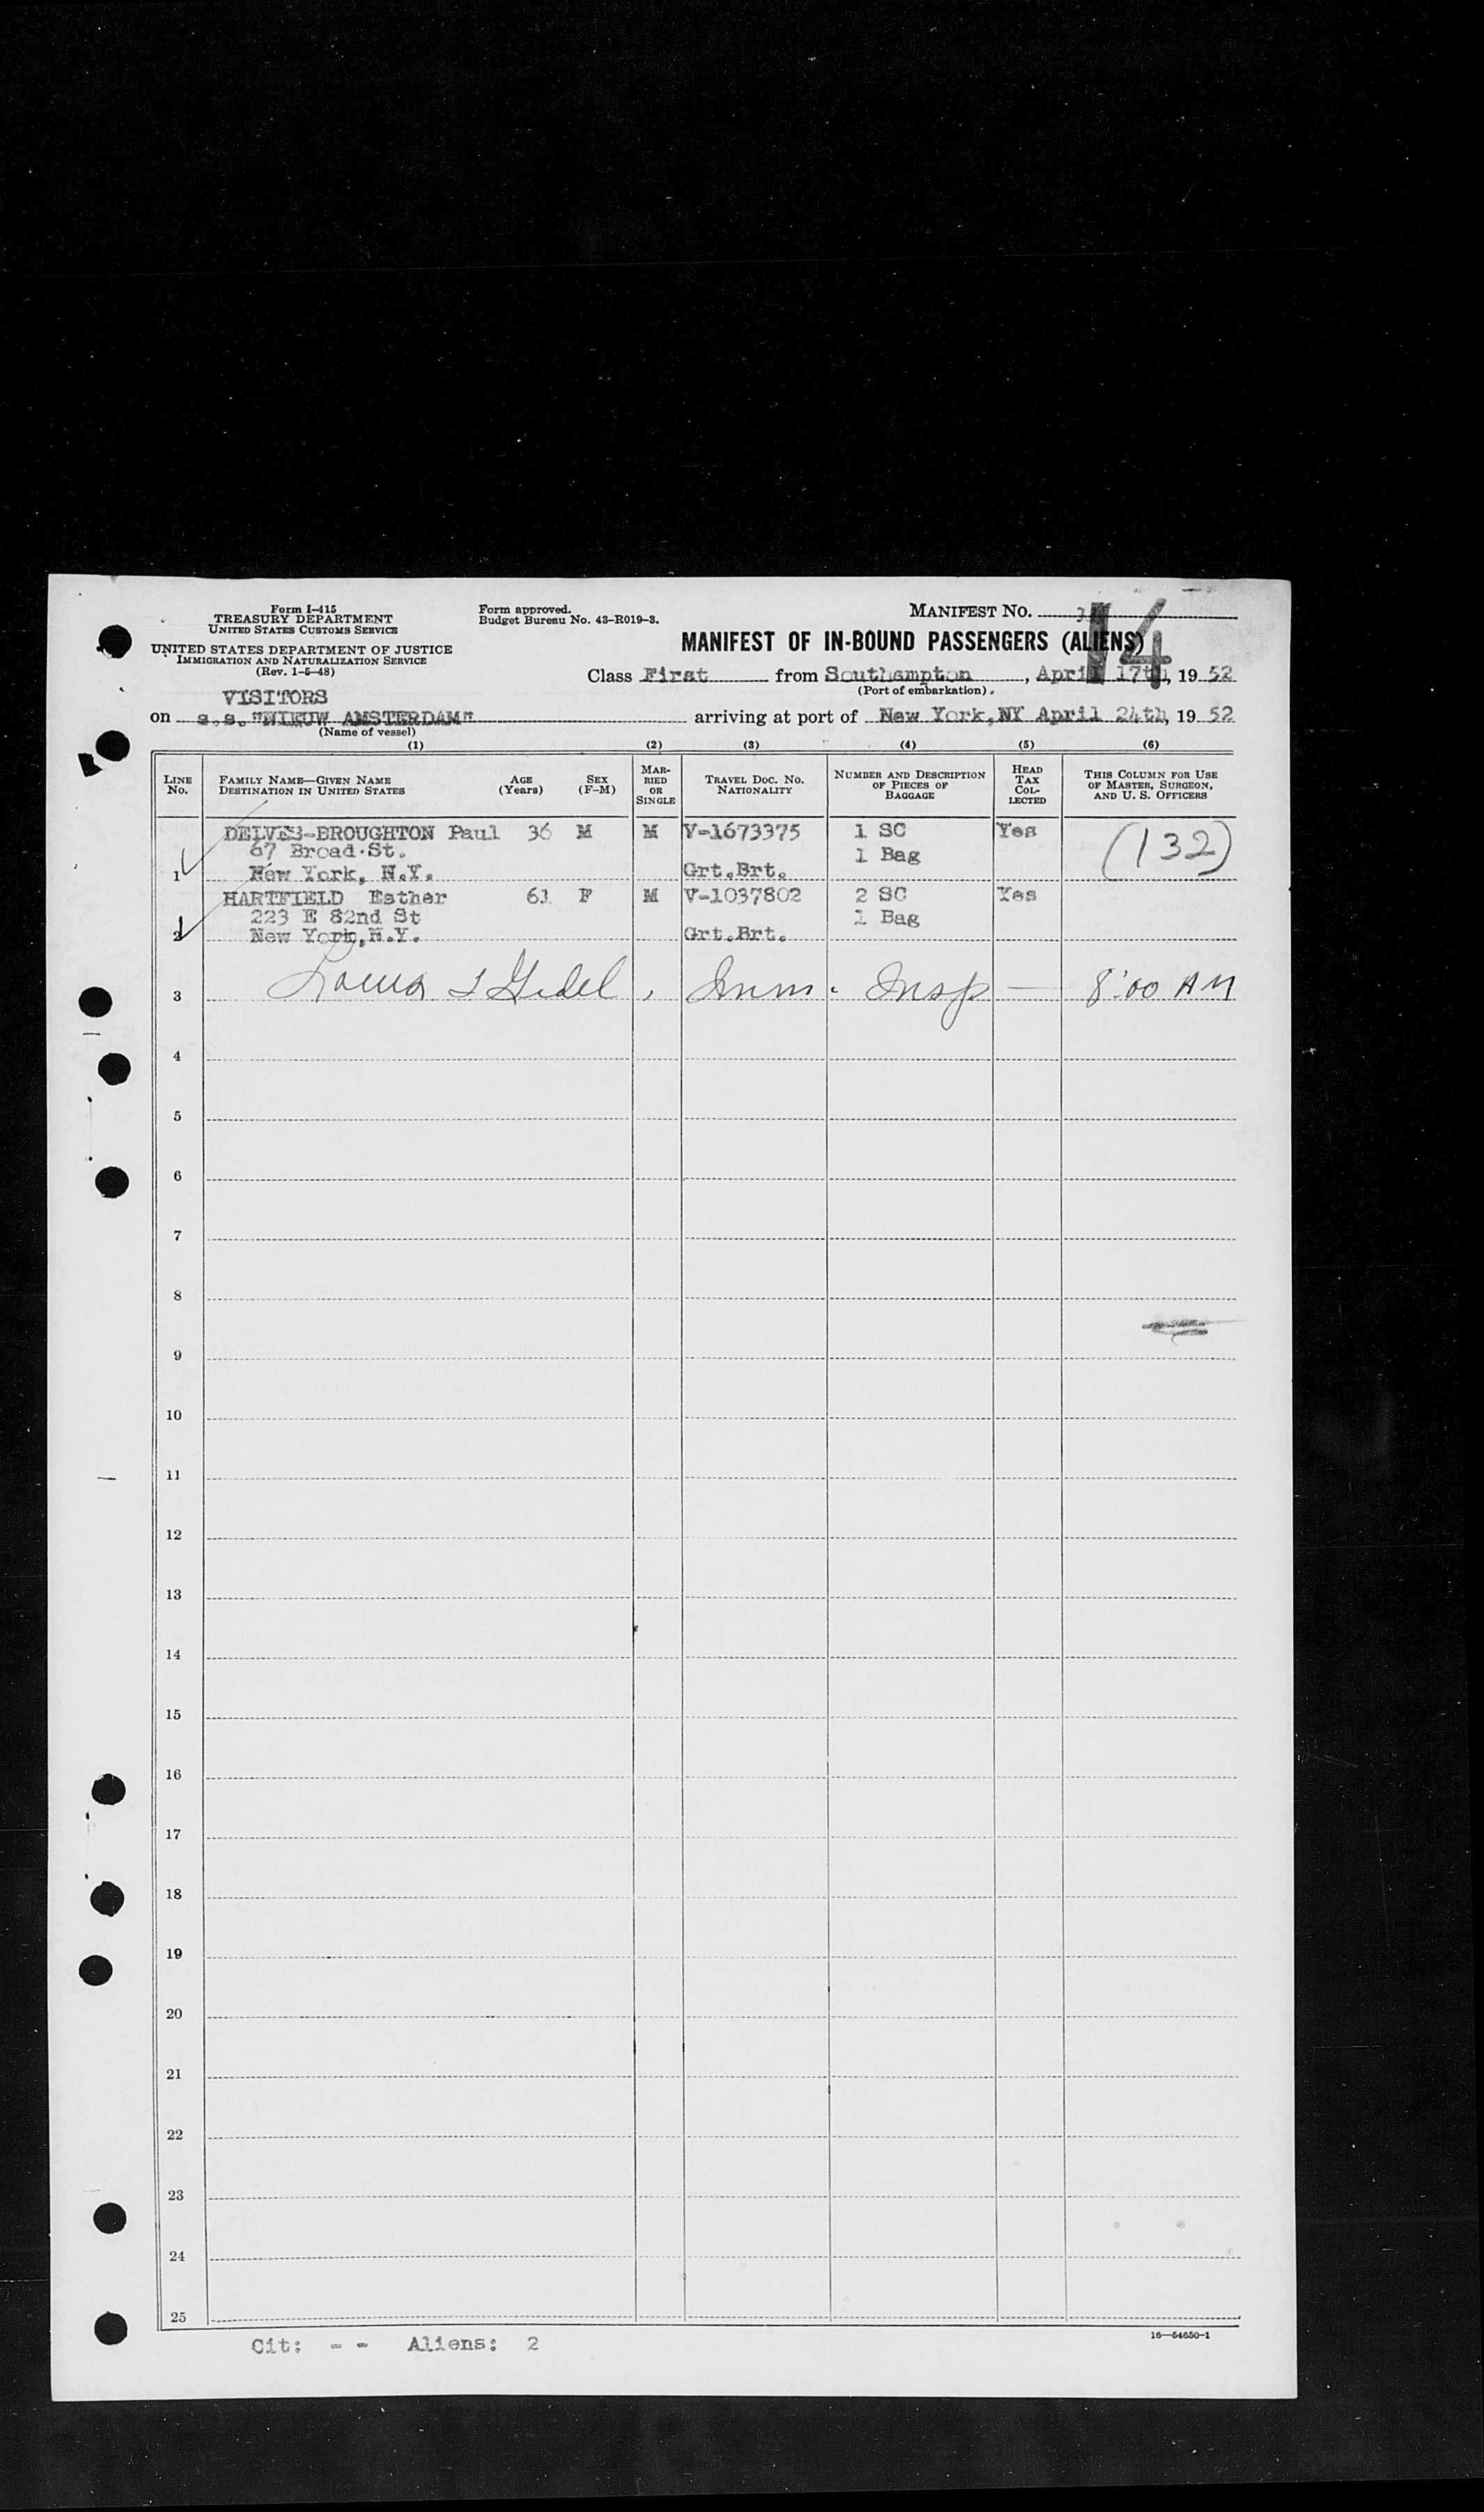 Form I-415
TREASURY DEPARTMENT
UNITED STATES CUSTOMS SERVICE
UNITED STATES DEPARTMENT OF JUSTICE
IMMIGRATION AND NATURALIZATION SERVICE
(Rev. 1-5-48)
Form approved.
Budget Bureau No. 43-R019-3.
MANIFEST NO.
14
MANIFEST OF IN-BOUND PASSENGERS (ALIENS)
Class First from Southampton, April 17th, 19 52
(Port of embarkation)
VISITORS
on s.s. "NIEUW AMSTERDAM" arriving at port of New York, NY April 24th, 19 52
(Name of vessel)
(1) (2) (3) (4) (5) (6)
LINE No.
FAMILY NAME—GIVEN NAME
DESTINATION IN UNITED STATES
AGE (Years)
SEX (F-M)
MARRIED OR SINGLE
TRAVEL DOC. NO. NATIONALITY
NUMBER AND DESCRIPTION OF PIECES OF BAGGAGE
HEAD TAX COLLECTED
THIS COLUMN FOR USE OF MASTER, SURGEON, AND U. S. OFFICERS
DELVES-BROUGHTON Paul 36 M M V-1673375 1 SC Yes (132)
67 Broad St. 1 Bag
1 New York, N.Y. Grt.Brt.
HARTFIELD Esther 61 F M V-1037802 2 SC Yes
223 E 82nd St 1 Bag
2 New York, N.Y. Grt.Brt.
3 Imm. Insp — 8:00 AM
4
5
6
7
8
9
10
11
12
13
14
15
16
17
18
19
20
21
22
23
24
25
Cit: - - Aliens: 2
16—54650-1